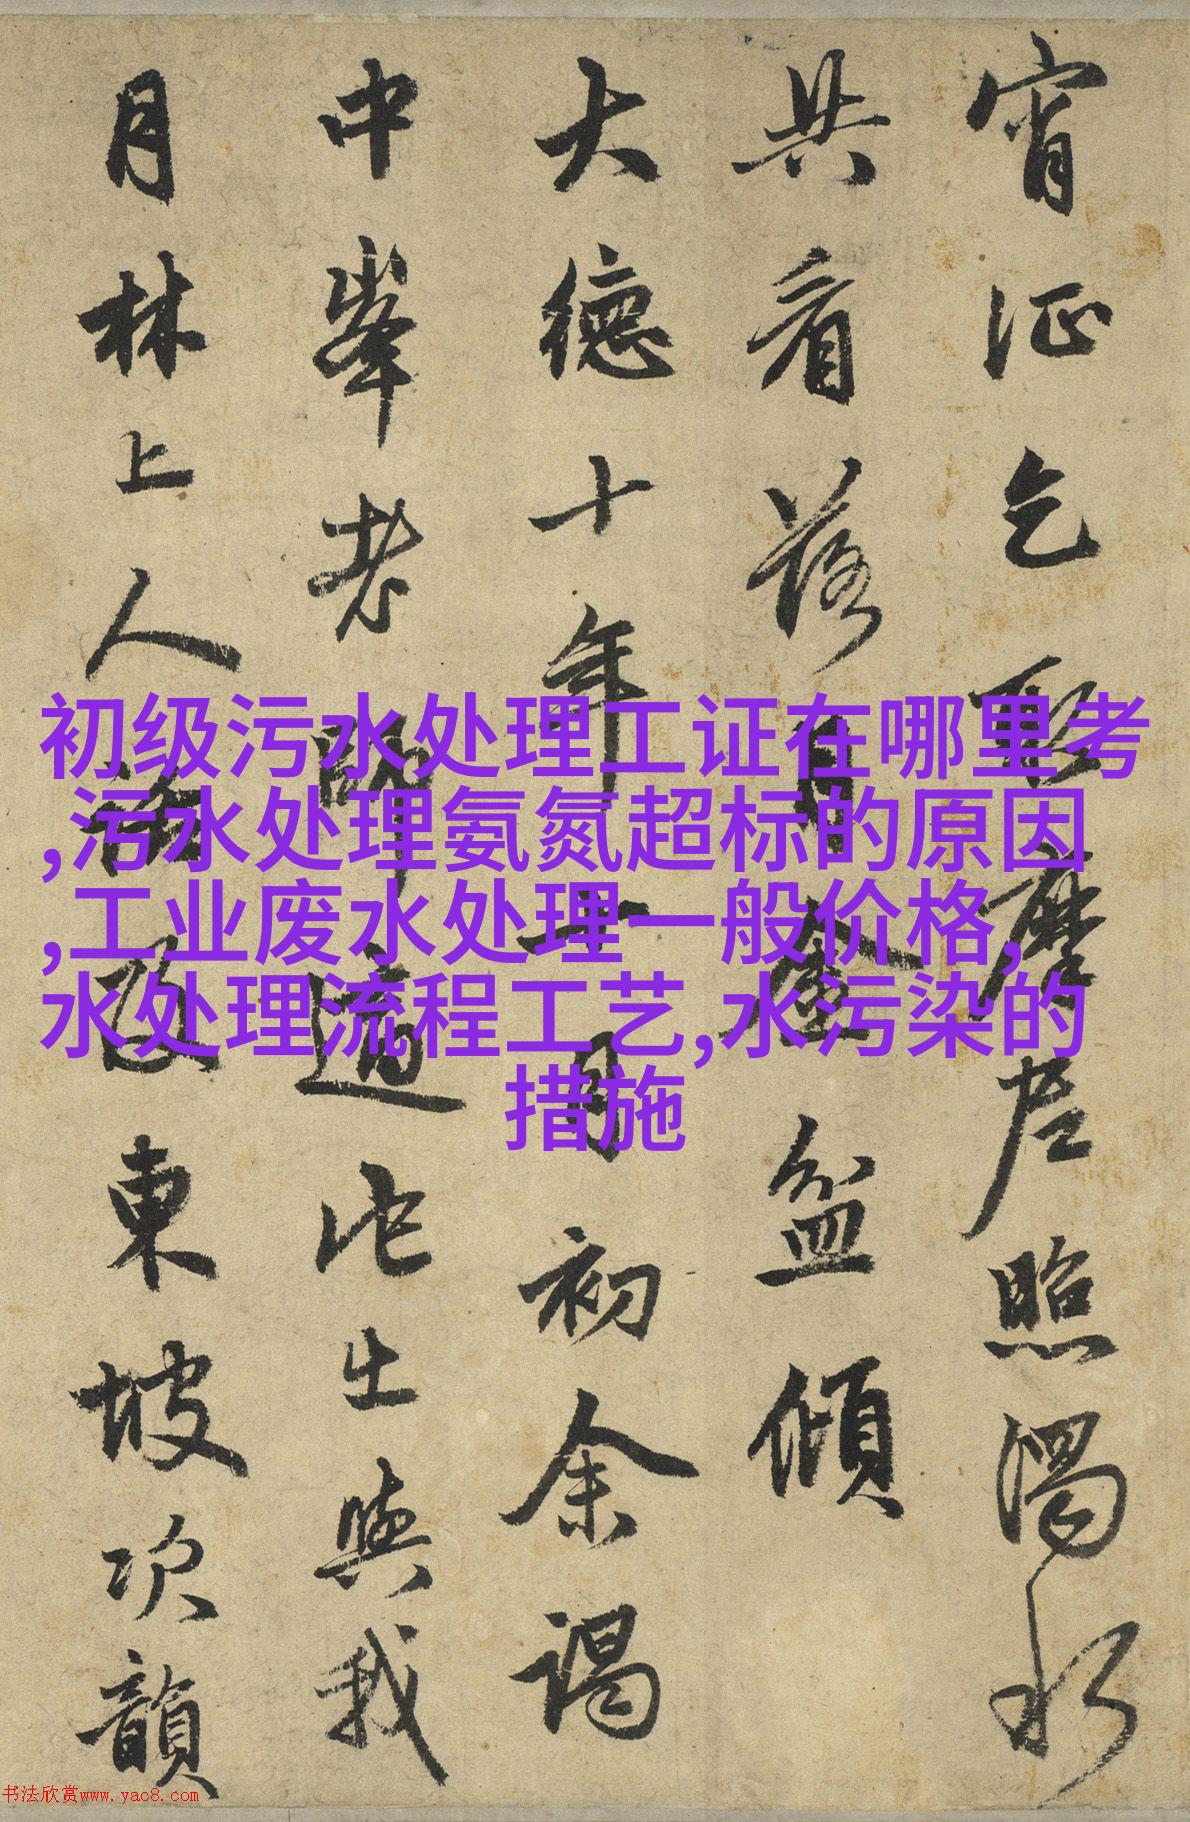 宵征乞取摩尼照濁水
共看落月金盆傾
大德十年月初余謁
中峯老師適他出與我
月林上人及東坡次韻
初级污水处理工证在哪里考
,污水处理氨氮超标的原因
,工业废水处理一般价格,
水处理流程工艺,水污染的
措施
书法欣赏www.yac8.com